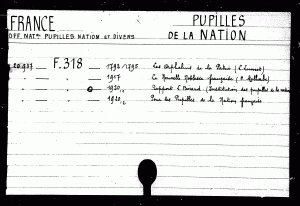 FRANCE
PUPILLES
OFF. NATAL PUPILLES NATION ET DIVERS
DE LA NATION
F.318 — 1792/1795 Les Orphelins de la Patrie
1917 La Nouvelle Noblesse française
1920 Rapport (Institution des pupilles de la nation
1920 Pour les Pupilles de la Nation française